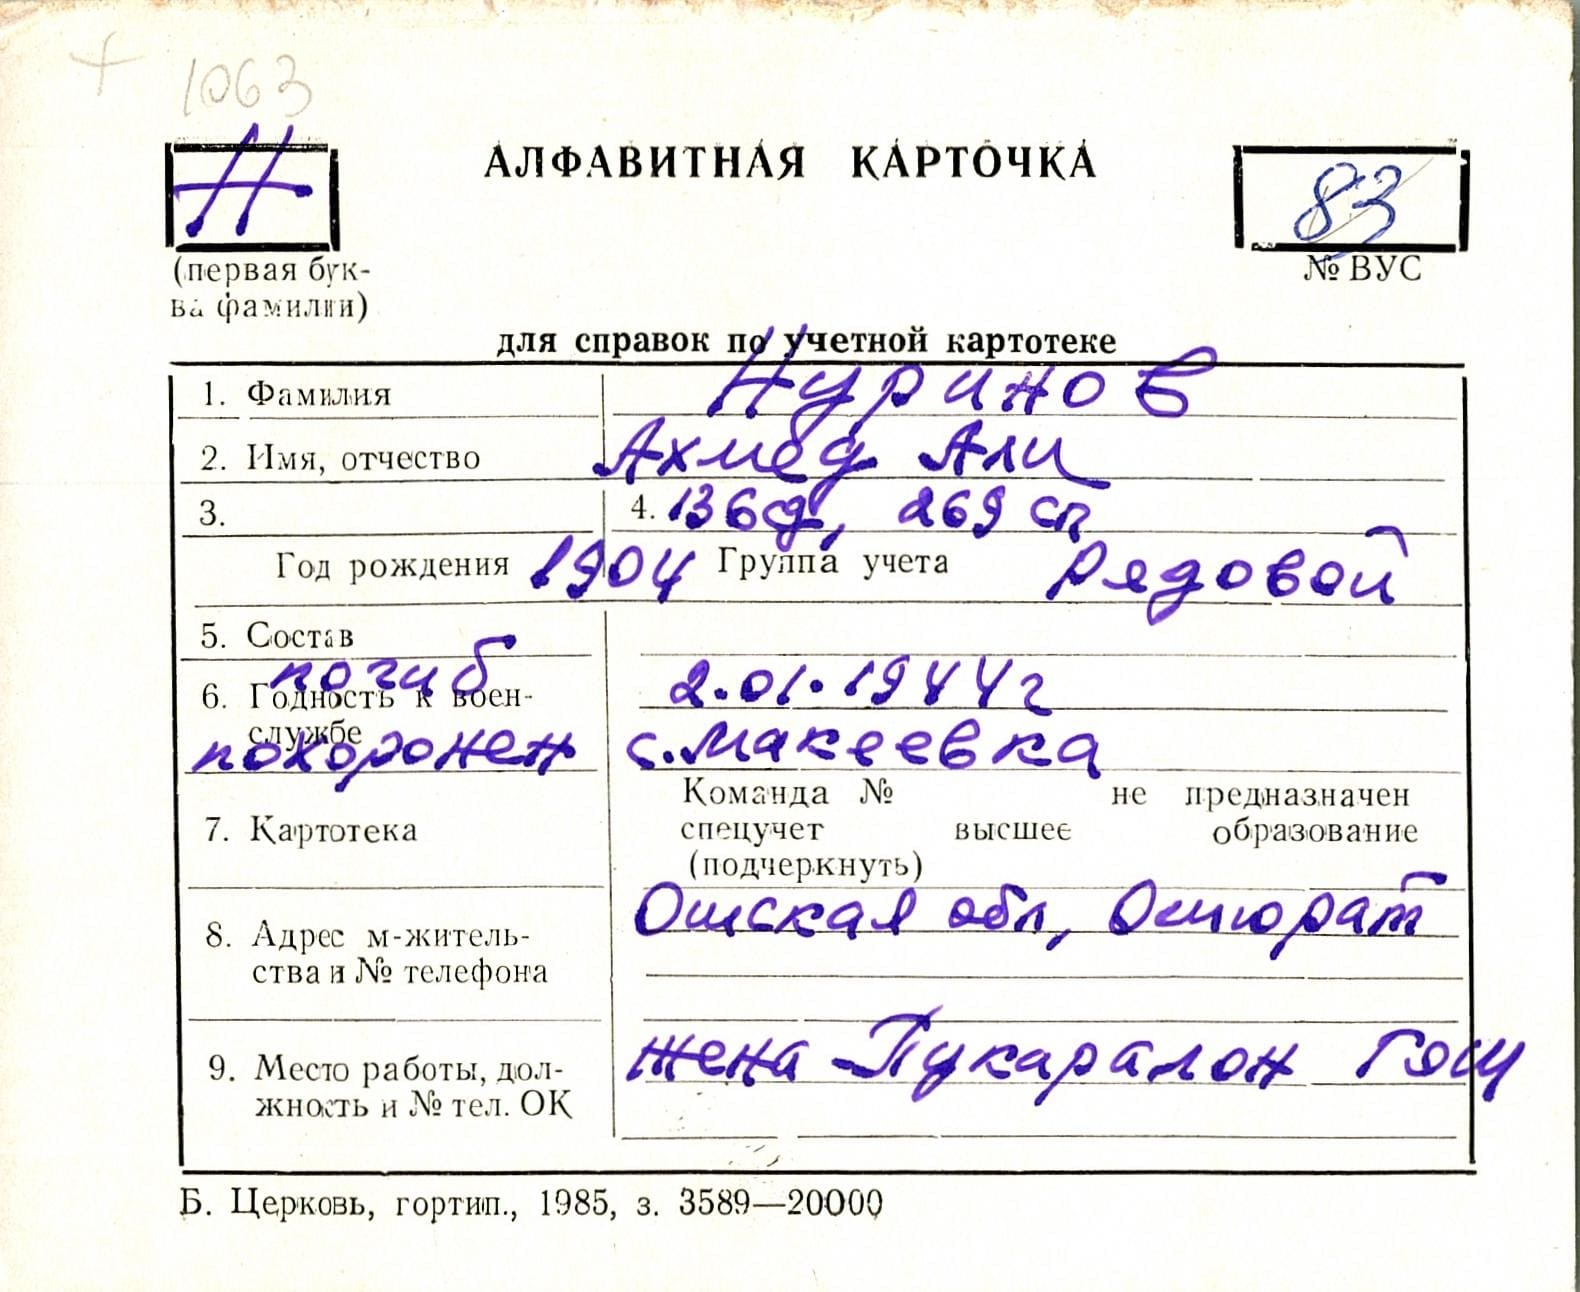 1063
Н
АЛФАВИТНАЯ КАРТОЧКА
83
(первая бук-
ва фамилии)
№ ВУС
для справок по учетной картотеке
1. Фамилия Нуринов
2. Имя, отчество Ахмед Али
3. 4. 136сд, 269 сп
Год рождения 1904 Группа учета Рядовой
5. Состав
погиб 2.01.1944г
6. Годность к воен-
службе
похоронен с.Макеевка
Команда № не предназначен
7. Картотека спецучет высшее образование
(подчеркнуть)
Ошская обл,
8. Адрес м-житель-
ства и № телефона
жена Пукаралон
9. Место работы, дол-
жность и № тел. ОК
Б. Церковь, гортип., 1985, з. 3589—20000